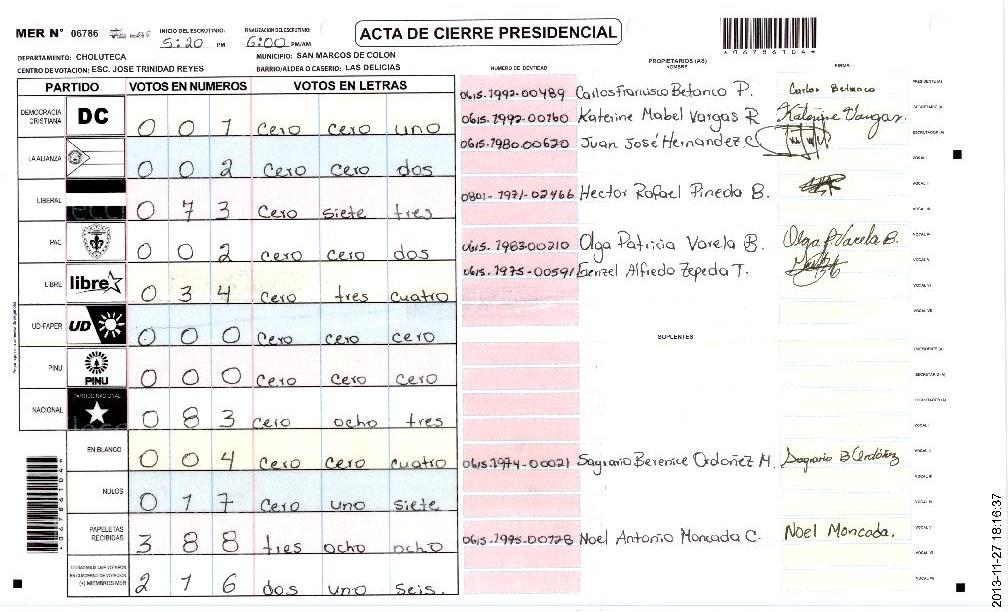 MER N° 06786
INICIO DEL ESCRUTINIO: 5:20 PM
FINALIZACION DEL ESCRUTINIO: 6:00 PM/AM
ACTA DE CIERRE PRESIDENCIAL
DEPARTAMENTO: CHOLUTECA
MUNICIPIO: SAN MARCOS DE COLON
CENTRO DE VOTACION: ESC. JOSE TRINIDAD REYES
BARRIO/ALDEA O CASERIO: LAS DELICIAS
PARTIDO VOTOS EN NUMEROS VOTOS EN LETRAS
DEMOCRACIA CRISTIANA DC 0 0 1 cero cero uno
LA ALIANZA 0 0 2 cero cero dos
LIBERAL 0 7 3 cero siete tres
PAC 0 0 2 cero cero dos
LIBRE libre 0 3 4 cero tres cuatro
UD-FAPER UD 0 0 0 cero cero cero
PINU PINU 0 0 0 cero cero cero
NACIONAL PARTIDO NACIONAL 0 8 3 cero ocho tres
EN BLANCO 0 0 4 cero cero cuatro
NULOS 0 1 7 cero uno siete
PAPELETAS RECIBIDAS 3 8 8 tres ocho ocho
CIUDADANOS QUE VOTARON
EN CUADERNO DE VOTACION
(+) MIEMBROS MER 2 1 6 dos uno seis.
PROPIETARIOS (AS)
NUMERO DE IDENTIDAD NOMBRE FIRMA
0615-1992-00489 Carlos Francisco Betanco P. Carlos Betanco PRESIDENTE(A)
0615-1992-00760 Katerine Mabel Vargas R Katerine Vargas. SECRETARIO(A)
0615-1980-00620 Juan José Hernandez C. ESCRUTADOR(A)
VOCAL I
0801-1971-02466 Hector Rafael Pineda B. VOCAL II
VOCAL III
0615-1983-00210 Olga Patricia Varela B. Olga P Varela B. VOCAL IV
0615-1975-00591 Alfredo Zepeda T. VOCAL V
VOCAL VI
VOCAL VII
SUPLENTES
PRESIDENTE(A)
SECRETARIO(A)
ESCRUTADOR(A)
VOCAL I
0615-1974-00021 Sagrario Berenice Ordoñez M. Sagrario B Ordóñez VOCAL II
VOCAL III
VOCAL IV
0615-1995-00728 Noel Antonio Moncada C. Noel Moncada. VOCAL V
VOCAL VI
VOCAL VII
06786104
2013-11-27 18:16:37